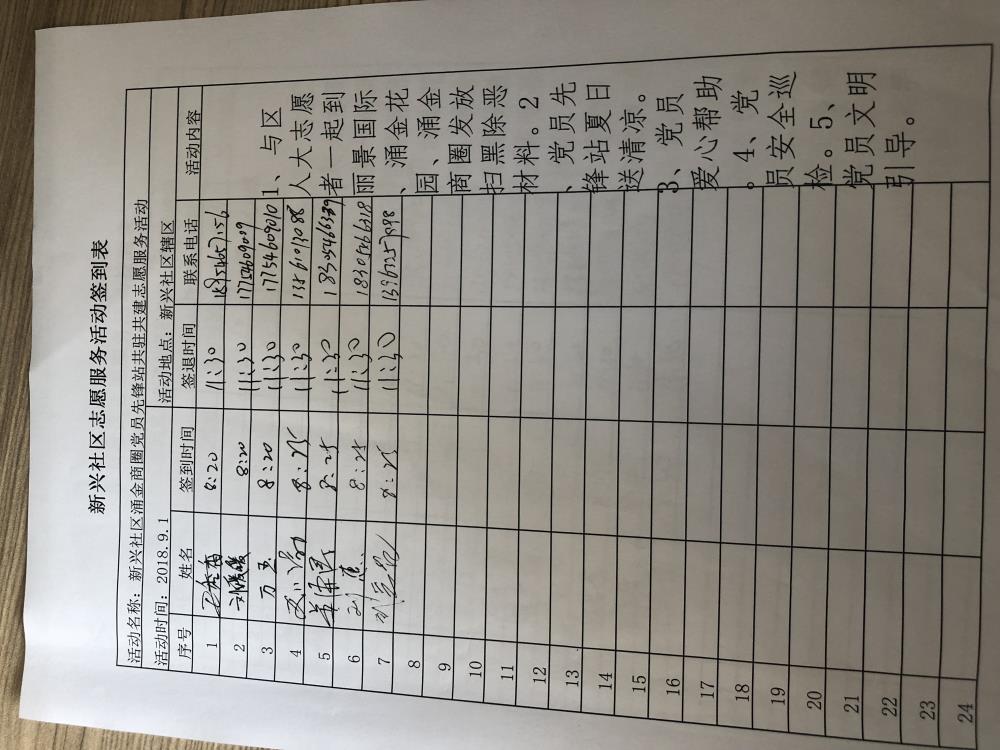 新兴社区志愿服务活动签到表
活动名称：新兴社区涌金商圈党员先锋站共驻共建志愿服务活动
活动时间：2018.9.1 活动地点：新兴社区辖区
序号 姓名 签到时间 签退时间 联系电话 活动内容
1 8:20 11:30
2 刘媛媛 8:20 11:30 17754609009
3 万玉 8:20 11:30 17754609010
4 8:25 11:30 13561013088
5 8:25 11:30
6 刘慧 8:25 11:30 18305466318
7 8:25 11:30
8
9
10
11
12
13
14
15
16
17
18
19
20
21
22
23
24
1、与区
人大志愿
者一起到
丽景国际
、涌金花
园、涌金
商圈发放
扫黑除恶
材料。2
、党员先
锋站夏日
送清凉。
3、党员
爱心帮助
。4、党
员安全巡
检。5、
党员文明
引导。